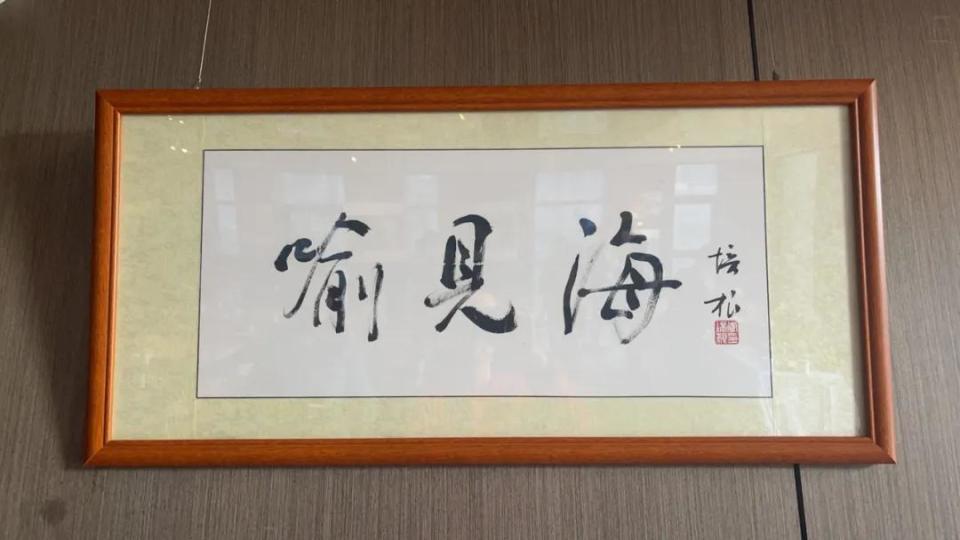 喻見海
培松